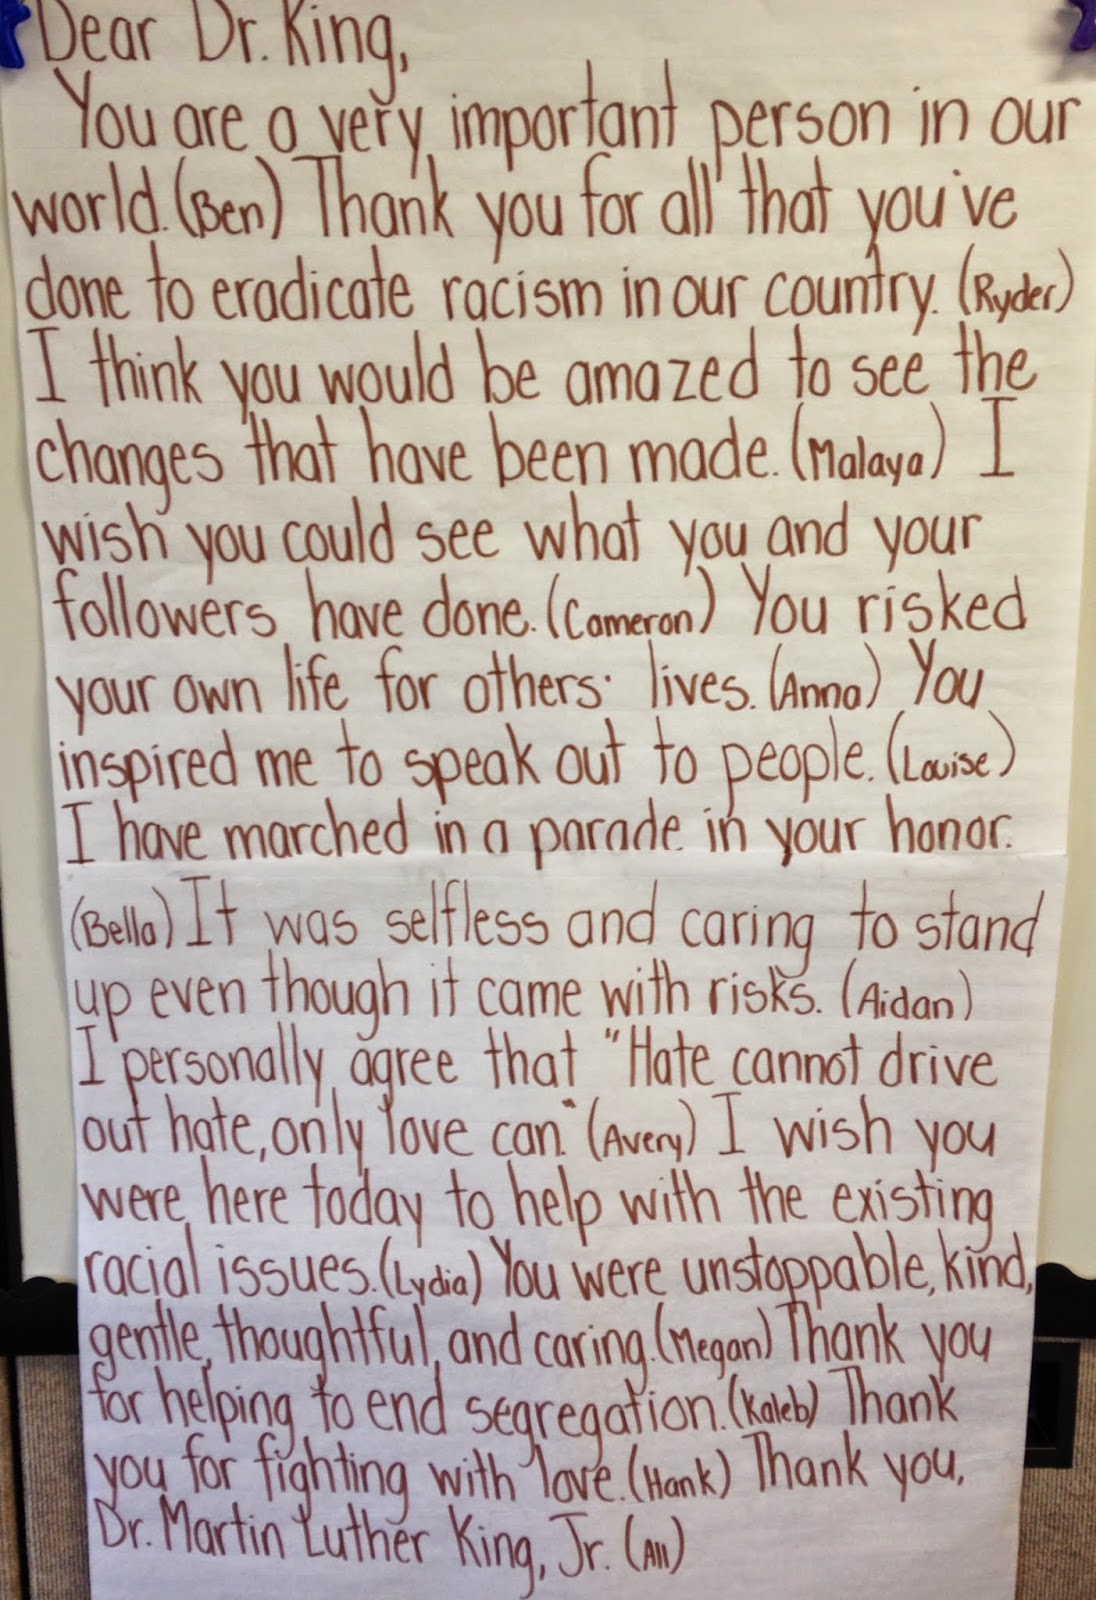 Dear Dr. King,
You are a very important person in our
world. (Ben) Thank you for all that you've
done to eradicate racism in our country. (Ryder)
I think you would be amazed to see the
changes that have been made. (Malaya) I
wish you could see what you and your
followers have done. (Cameron) You risked
your own life for others' lives. (Anna) You
inspired me to speak out to people. (Louise)
I have marched in a parade in your honor.
(Bella) It was selfless and caring to stand
up even though it came with risks. (Aidan)
I personally agree that "Hate cannot drive
out hate, only love can." (Avery) I wish you
were here today to help with the existing
racial issues. (Lydia) You were unstoppable, kind,
gentle, thoughtful, and caring. (Megan) Thank you
for helping to end segregation. (Kaleb) Thank
you for fighting with love. (Hank) Thank you,
Dr. Martin Luther King, Jr. (All)